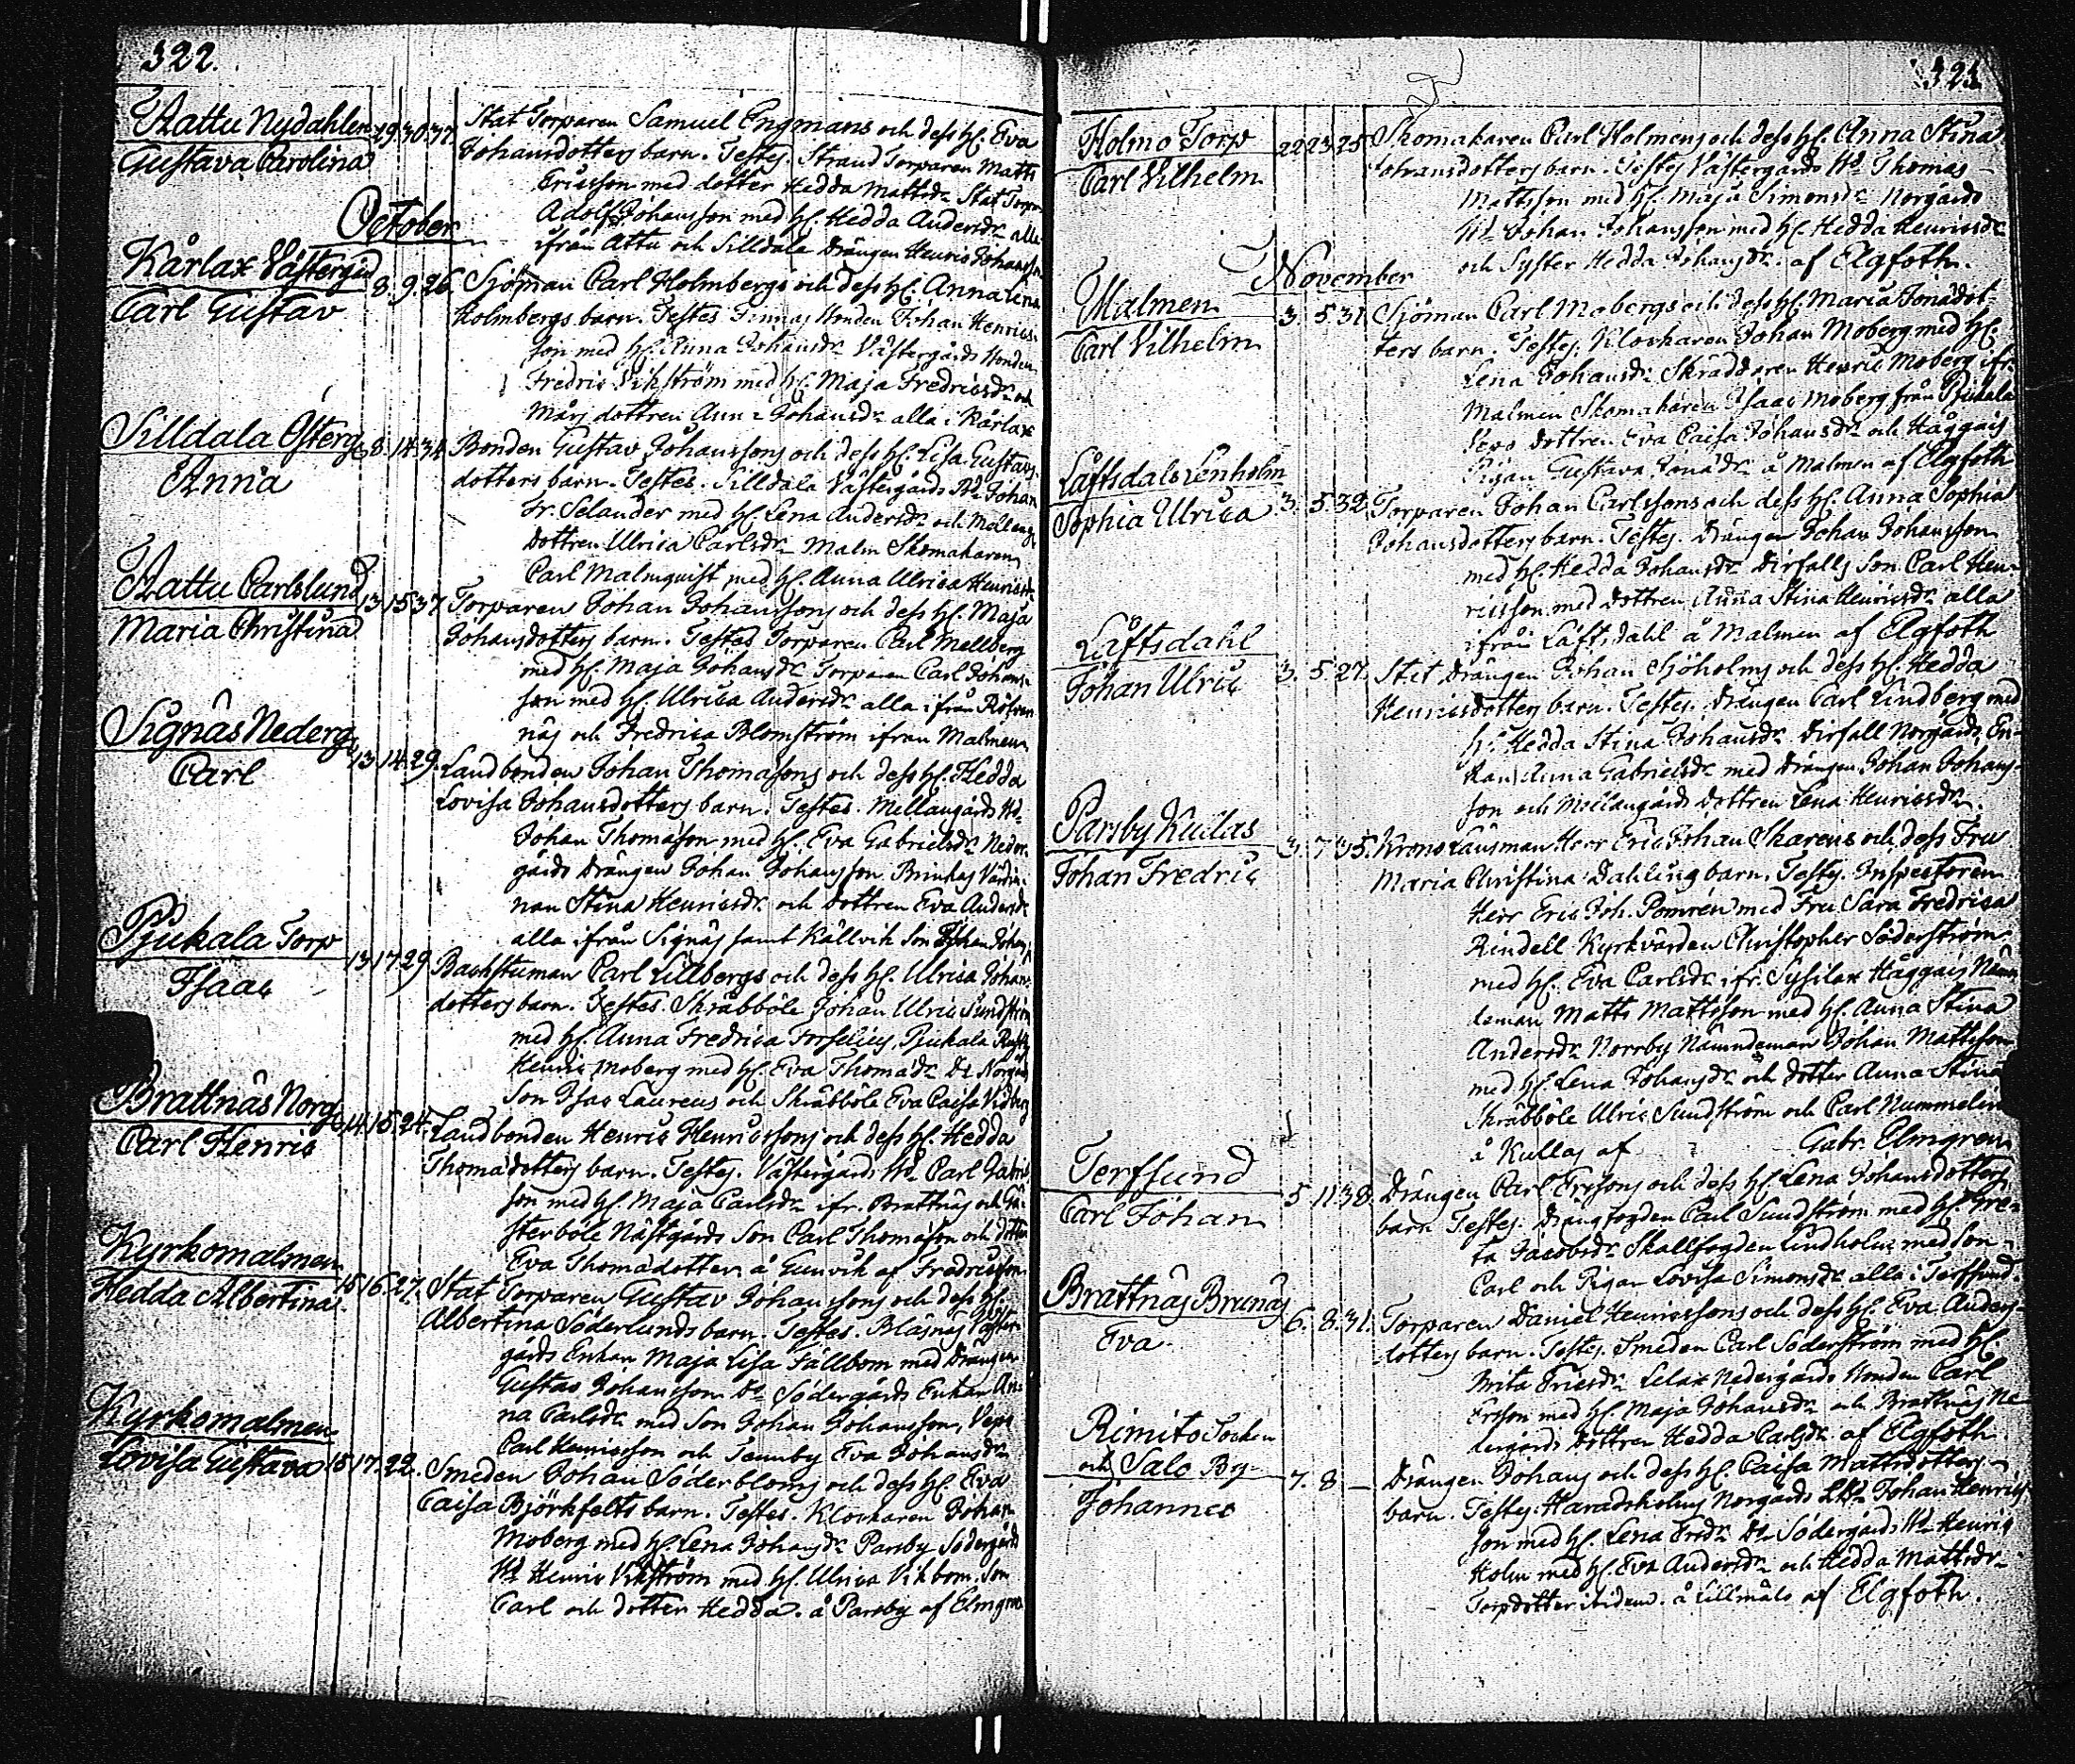 322.
Attu Nydahlen 29. 30. 37. Stat Torparen Samuel Engmans och dess H. Eva
Gustava Carolina Johansdotters barn. Testes. Strand Torparen Matts
Ericsson med dotter Hedda Mattsdr Stat Torpar
Adolf Johansson med H. Hedda Andersdr alla
ifrån Attu och Silldala Drängen Henric Johansson
October
Kårlax Västergrd 8. 9. 26. Sjöman Carl Holmbergs och dess H. Anna Lena
Carl Gustav Holmbergs barn. Testes Bonden Johan Henrics-
son med H. Anna Johansdr Västergårds Bonden
Fredric Vikström med H. Maja Fredricsdr och
Mårs dottren Anna Johansdr alla i Kårlax
Silldala Österg 8. 14. 34 Bonden Gustav Johanssons och dess H. Lisa Gustavs-
Anna dotters barn. Testes. Silldala Västergårds Bd. Johan
Fr. Selander med H. Lena Andersdr och Mellang
Dottren Ulrica Carlsdr Malm Skomakaren
Carl Malmquist med H. Anna Ulrica Henricsdr
Attu Carlslund 13. 15. 37. Torparen Johan Johanssons och dess H. Maja
Maria Christina Johansdotters barn. Testes Torparen Carl Mellberg
med H. Maja Johansdr Torparen Carl Johans-
son med H. Ulrica Andersdr alla ifrån
näs och Fredrica Blomström ifrån Malmen
Signäs Nederg 13. 14. 29. Landbonden Johan Thomassons och dess H. Hedda
Carl Lovisa Johansdotters barn. Testes. Mellangårds Bd.
Johan Thomasson med H. Eva Gabrielsdr Neder-
gårds Drängen Johan Johansson. Brinkas Värdin-
nan Stina Henricsdr och Dottren Eva Andersdr
alla ifrån Signäs samt Källvik Son Johan
Pjukala Torp 13. 17. 29. Backstuman Carl Lillbergs och dess H. Ulrica Johans-
Isaac dotters barn. Testes. Skräbböle Johan Ulric Sundström
med H. Anna Fredrica Forselius, Pjukala
Henric Moberg med H. Eva Thomadr Do Norgårds
Son Isac Laurens och Skräbböle Eva Caisa Vidberg
Brattnäs Norg 14. 15. 24. Landbonden Henric Henricssons och dess H. Hedda
Carl Henric Thomadotters barn. Testes. Västergårds Bd. Carl Gabriels
son med H. Maja Carlsdr ifr. Brattnäs och
sterböle Nästgårds Son Carl Thomasson och dotter
Eva Thomadotter å Gunvik af Fredricsson
Kyrkomalmen 15. 16. 27. Stat Torparen Gustav Johanssons och dess H.
Hedda Albertina Albertina Söderlunds barn. Testes. Bläsnäs Väster-
gårds Enkan Maja Lisa Fällbom med Drängen
Gustav Johansson Do Södergårds Enkan An-
na Carlsdr med Son Johan Johansson, Vepo
Carl Henricsson och Tennby Eva Johansdr
Kyrkomalmen
Lovisa Gustava 15. 17. 22. Smeden Johan Söderbloms och dess H. Eva
Caisa Björkfelts barn. Testes. Klockaren Johan
Moberg med H. Lena Johansdr Parsby Södergårds
Bd Henric Vikström med H. Ulrica Vikbom. Son
Carl och dotter Hedda. å Parsby af Elmgren
323
Holmo Torp 22. 23. 25. Skomakaren Carl Holmens och dess H. Anna Stina
Carl Vilhelm Johansdotters barn. Testes Västergårds Bd. Thomas
Mattsson med H. Maja Simonsdr Norgårds
Bd. Johan Johansson med H. Hedda Henricsdr
och Syster Hedda Johansdr. af Elgfoth.
November
Malmen 3. 5. 31. Sjöman Carl Mobergs och dess H. Maria Jonädot-
Carl Vilhelm ters barn. Testes. Klockaren Johan Moberg med H.
Lena Johansdr Skräddaren Henric Moberg ifr.
Malmen Skomakaren Isaac Moberg från Pjukala
Dottren Eva Caisa Johansdr och Häggais
Pigan Gustava Jonädr å Malmen af Elgfoth
Låftsdals Lenholm 3. 5. 32. Torparen Johan Carlssons och dess H. Anna Sophia
Sophia Ulrica Johansdotters barn. Testes. Drängen Johan Johansson
med H. Hedda Johansdr Dirfalls Son Carl Hen-
ricsson med dottren Anna Stina Henricsdr alla
ifrån Låftsdahl å Malmen af Elgfoth
Låftsdahl 3. 5. 27. Stat Drängen Johan Sjöholms och dess H. Hedda
Johan Ulric Henricsdotters barn. Testes. Drängen Carl Lindberg med
H. Hedda Stina Johansdr Dirfall Norgårds En-
kan Anna Gabrielsdr med Drängen Johan Johans-
son och Mellangårds Dottren Lena Henricsdr.
Parsby Kullas 3. 7. 35. Krono Länsman Herr Eric Johan Skarens och dess Fru
Johan Fredric Maria Christina Dahlins barn. Testes. Inspectoren
Herr Eric Joh. Pomrén med Fru Sara Fredrica
Rindell Kyrkvärden Christopher Söderström
med H. Eva Carlsdr ifr. Sysilax Häggais Nämn-
deman Matts Mattsson med H. Anna Stina
Andersdr Norrby Nämndeman Johan Mattsson
med H. Lena Johansdr och dotter Anna Stina
Skräbböle Ulric Sundström och Carl Nummelin
å Kullas af Gabr. Elmgren
Terfsund 5. 11. 38. Drängen Carl Erssons och dess H. Lena Johansdotters
Carl Johan barn Testes. Drängfogden Carl Sundström med H. Gre-
ta Jacobsdr Skallfogden Lindholm med Son
Carl och Pigan Lovisa Simonsdr alla i Terfsund.
Brattnäs Brunäs 6. 8. 31. Torparen Daniel Henricssons och dess H. Eva Anders-
Eva dotters barn. Testes. Smeden Carl Söderström med H.
Brita Ericsdr Lelax Nedergårds Bonden Carl
Ersson med H. Maja Johansdr och Brattnäs Ne-
dergårds Dottren Hedda Carlsdr af Elgfoth.
Rimito Socken
och Salo By 7. 8 — Drängen Johans och dess H. Caisa Mattsdotters
Johannes barn. Testes. Haradsholms Norgårds Bd. Johan Henrics
son med H. Lena Ersdr Do Södergårds Bd Henric
Holm med H. Eva Andersdr och Hedda Mattsdr
Torpdotter ibidem. å Lillmälo af Elgfoth.